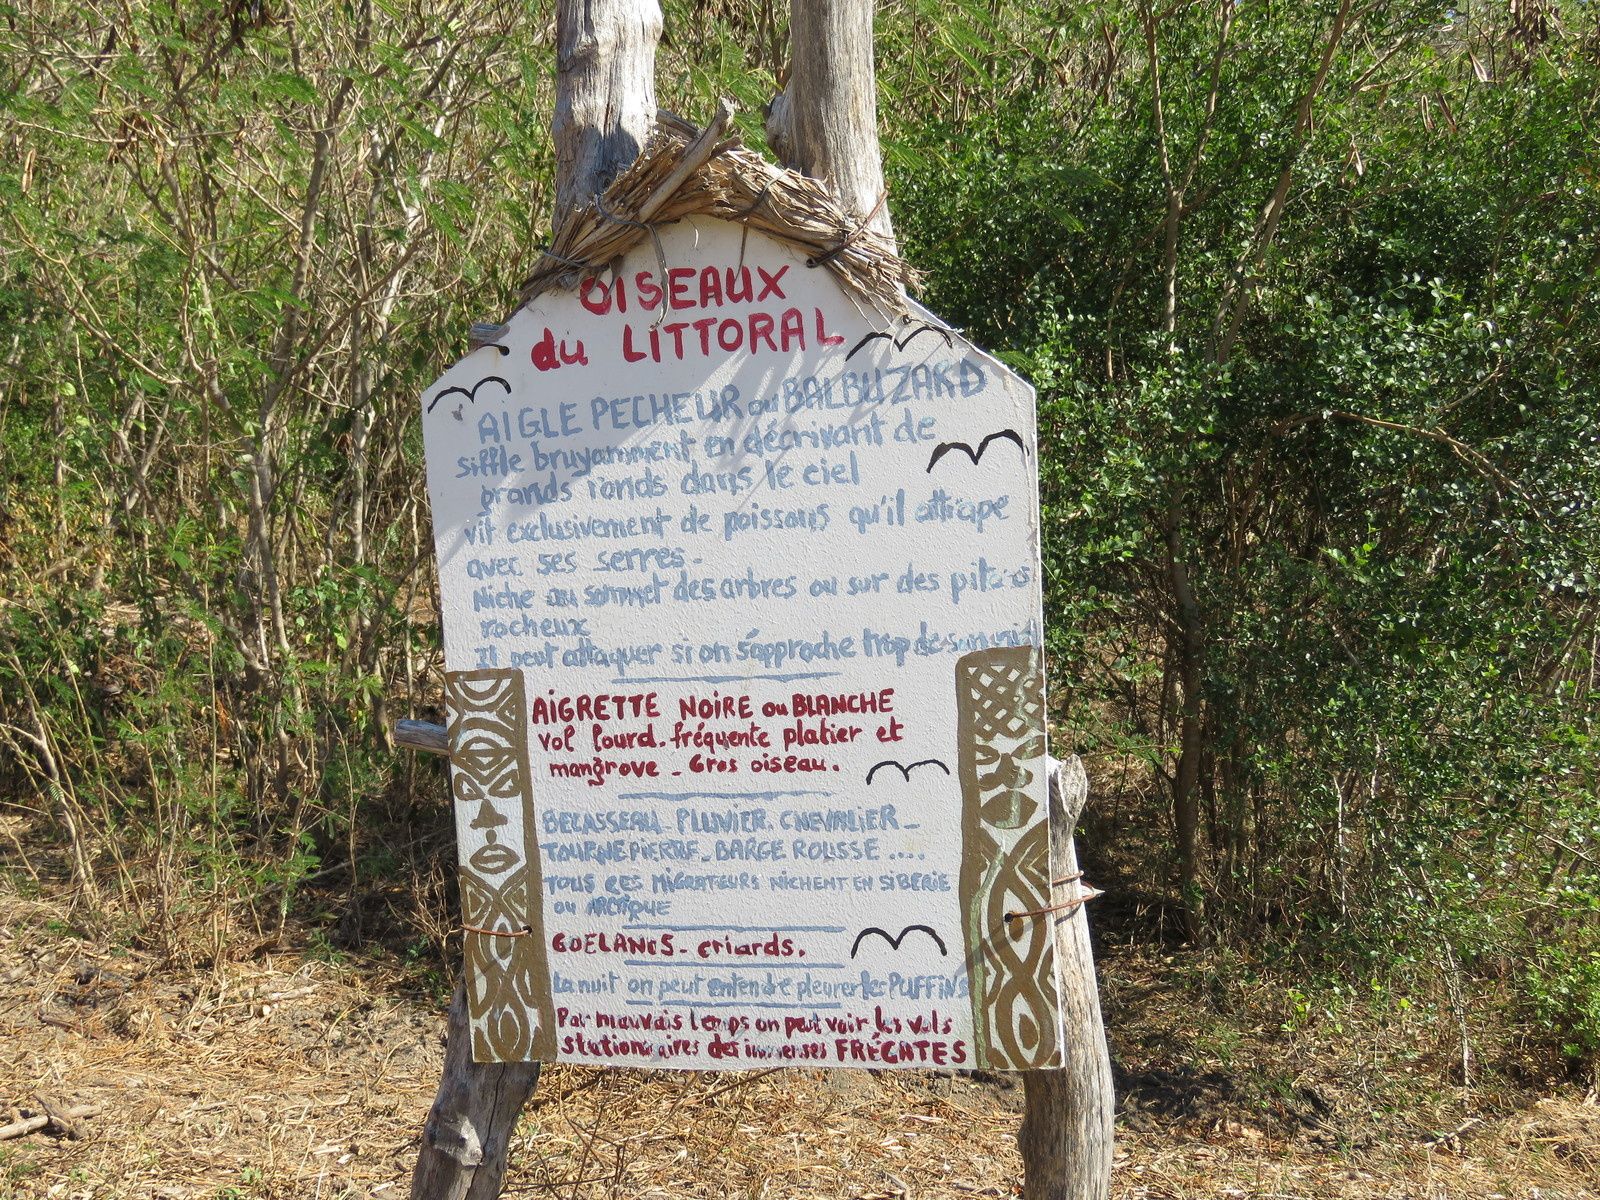 OISEAUX
du LITTORAL
AIGLE PECHEUR ou BALBUZARD
siffle bruyamment en décrivant de
grands ronds dans le ciel
vit exclusivement de poissons qu'il attrape
avec ses serres -
Niche au sommet des arbres ou sur des pitons
rocheux
Il peut attaquer si on s'approche trop de son nid
AIGRETTE NOIRE ou BLANCHE
vol lourd. fréquente platier et
mangrove - Gros oiseau.
BECASSEAU - PLUVIER. CHEVALIER -
TOURNEPIERRE - BARGE ROUSSE ....
TOUS CES MIGRATEURS NICHENT EN SIBERIE
OU ARCTIQUE
GOELANDS - criards.
La nuit on peut entendre pleurer les PUFFINS
Par mauvais temps on peut voir les vols
stationnaires des immenses FRÉGATES